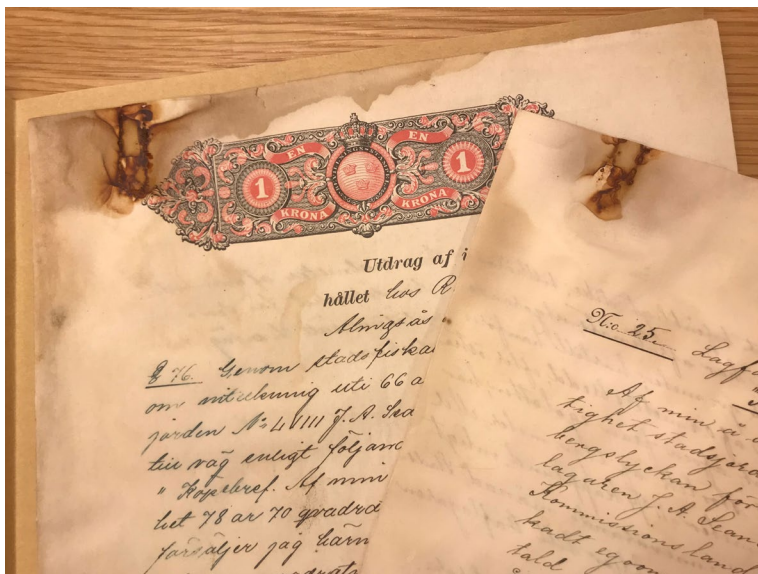 EN EN
1 1
KRONA KRONA
Utdrag af i
hållet hos R
Alingsås
§ 76. Genom stadsfiska
om inteckning uti 66 a
jorden No LVIII J. A.
till väg enligt följand
" Köpebref. Af min
het 78 ar 70 qvadra
försäljer jag härm
No 25.
Lagf
Af min
tighet stadsjord
bergslyckan för
lagaren J. A.
Kommissionsland
kadt egoom
tald